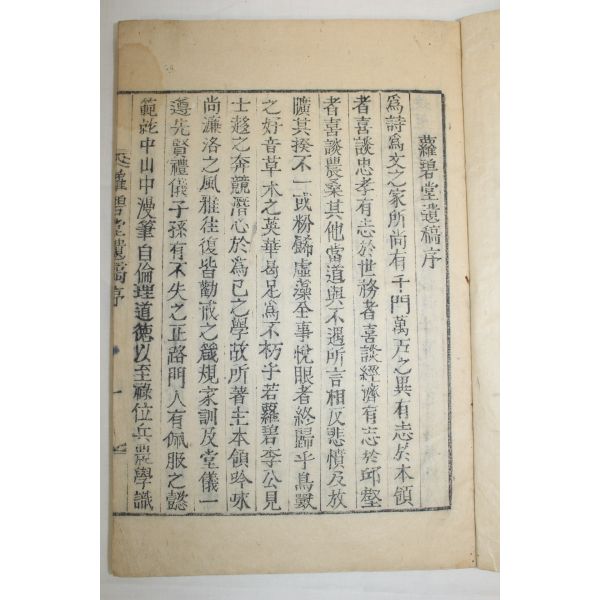 蘿碧堂遺稿序
爲詩爲文之家所尚有千門萬方之異有志於本領
者喜談忠孝有志於世務者喜談經濟有志於邱壑
者喜談農桑其他當道與不遇所言相反悲憤及放
曠其揆不一或粉餙虛藻全事悅眼者終歸乎鳥獸
之好音草木之英華曷足爲不朽乎若蘿碧李公見
士趍之奔競潛心於爲己之學故所著主本領吟咏
尚濂洛之風雅往復皆勸戒之箴規家訓及堂儀一
遵先賢禮儀子孫有不失之正路門人有佩服之懿
範玆中山中漫筆自倫理道德以至祿位兵農學識
蘿碧堂遺稿序
一